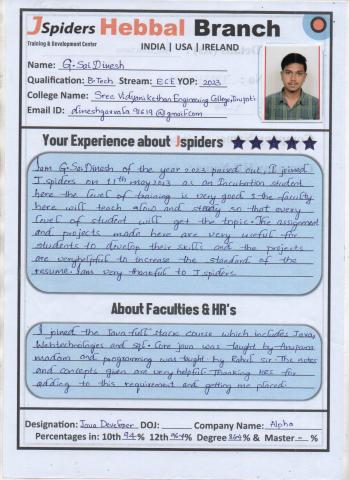 JSpiders Hebbal Branch
Training & Development Center
INDIA | USA | IRELAND
Name: G. Sai Dinesh
Qualification: B.Tech Stream: ECE YOP: 2023
College Name: Sree Vidyanikethan Engineering College, Tirupati
Email ID:
Your Experience about Jspiders
Iam G. Sai Dinesh of the year 2023 passed out, I joined
J spiders on 11th may 2023 as an Incubation student
here the level of training is very good & the faculty
here will teach slow and steady so that every
level of student will get the topic. The assignment
and projects made here are very useful for
students to develop their skills and the projects
are veryhelpful to increase the standard of the
resume. iam very thankful to J spiders.
About Faculties & HR's
I joined the Java full stack course which includes Java,
Webtechnologies and Sql. Core java was taught by Anupama
madam and programming was taught by Rahul sir. The notes
and concepts given are very helpful. Thanking HRs for
adding to this requirement and getting me placed.
Designation: Java Developer DOJ: Company Name: Alpha
Percentages in: 10th 94 % 12th % Degree % & Master - %